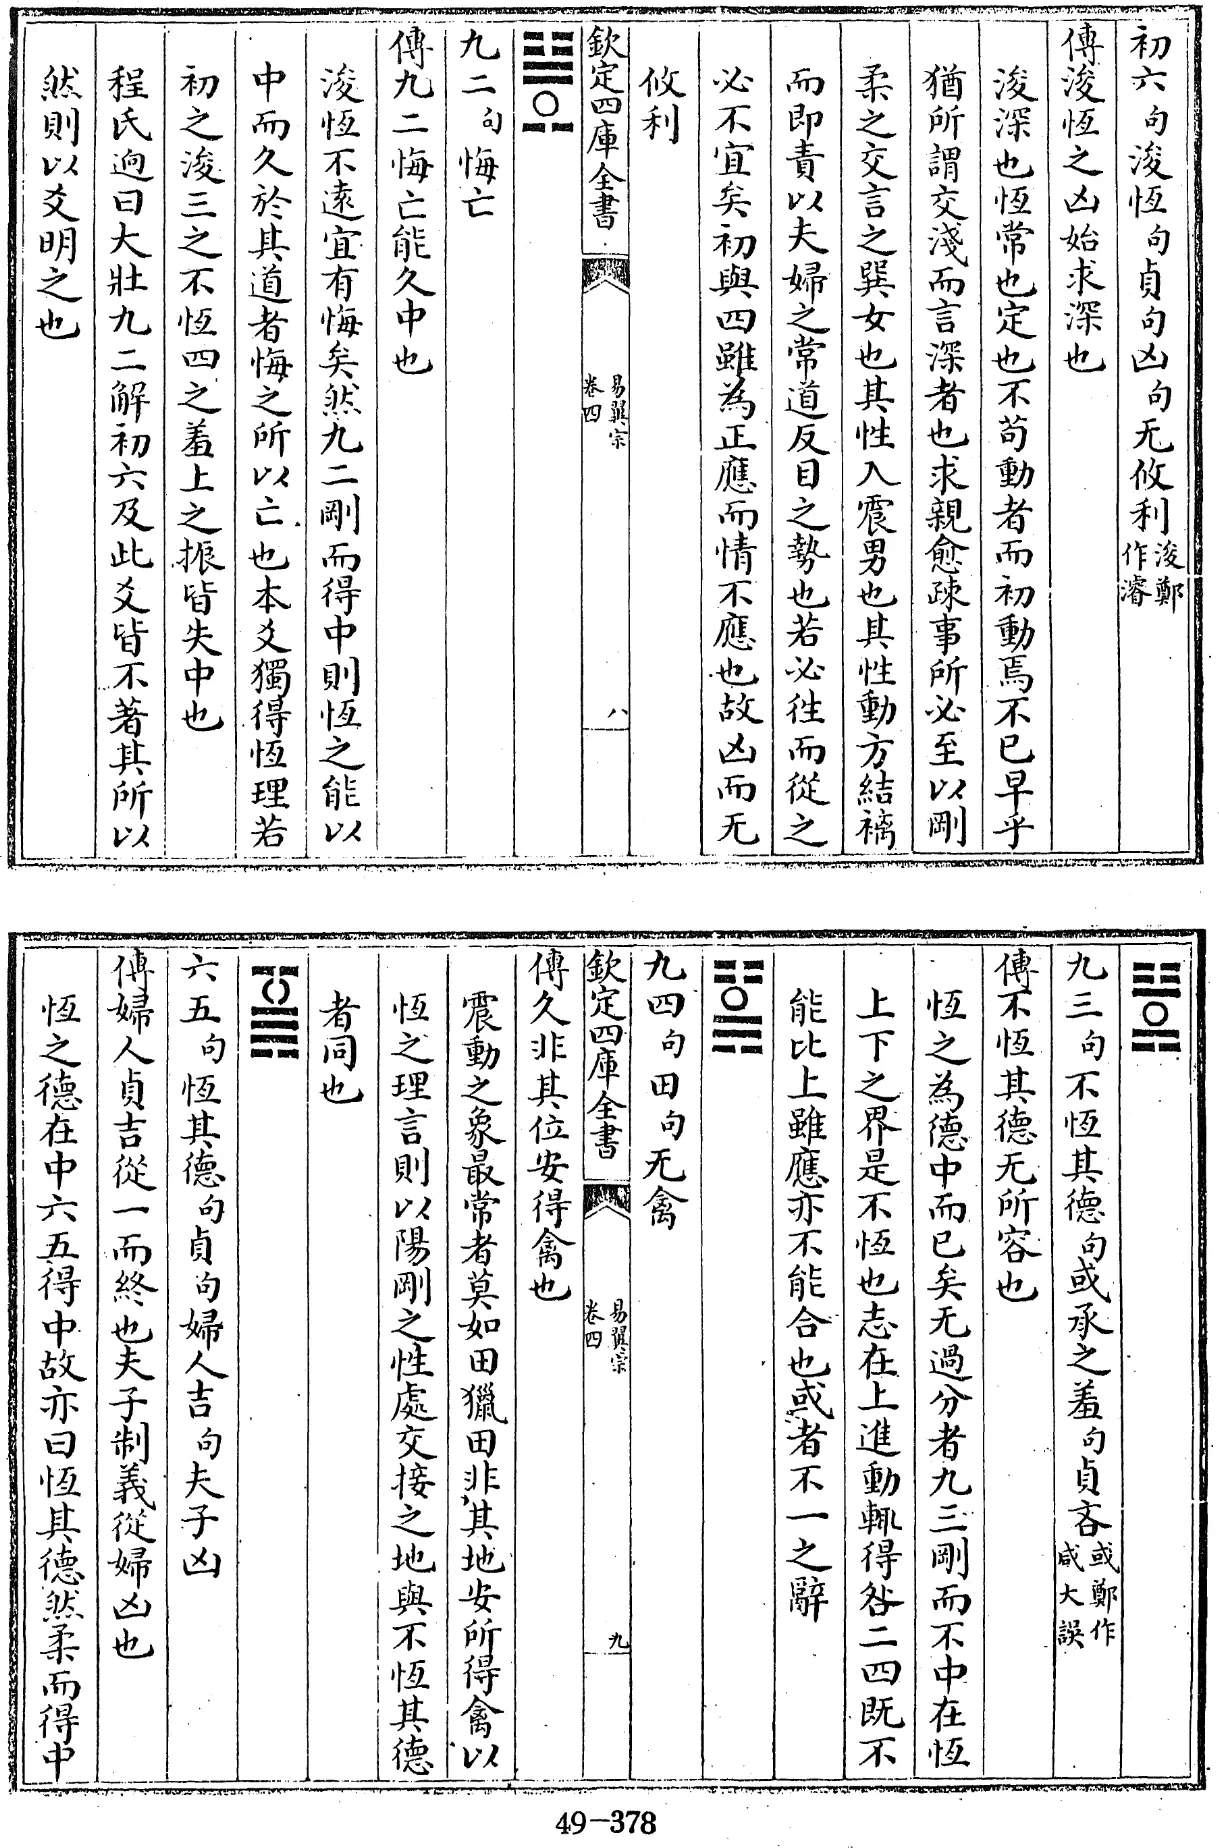 初六句浚恆句貞句凶句无攸利浚鄭作濬
傳浚恆之凶始求深也
浚深也恆常也定也不苟動者而初動焉不已早乎
猶所謂交淺而言深者也求親愈疎事所必至以剛
柔之交言之巽女也其性入震男也其性動方結褵
而即責以夫婦之常道反目之勢也若必徃而從之
必不宜矣初與四雖為正應而情不應也故凶而无
攸利
欽定四庫全書
易翼宗
卷四
八
九二句悔亡
傳九二悔亡能久中也
浚恆不遠宜有悔矣然九二剛而得中則恆之能以
中而久於其道者悔之所以亡也本爻獨得恆理若
初之浚三之不恆四之羞上之振皆失中也
程氏逈曰大壯九二解初六及此爻皆不著其所以
然則以爻明之也
九三句不恆其德句或承之羞句貞吝或鄭作咸大誤
傳不恆其德无所容也
恆之為德中而已矣无過分者九三剛而不中在恆
上下之界是不恆也志在上進動輒得咎二四既不
能比上雖應亦不能合也或者不一之辭
九四句田句无禽
欽定四庫全書
易翼宗
卷四
九
傳久非其位安得禽也
震動之象最常者莫如田獵田非其地安所得禽以
恆之理言則以陽剛之性處交接之地與不恆其德
者同也
六五句恆其德句貞句婦人吉句夫子凶
傳婦人貞吉從一而終也夫子制義從婦凶也
恆之德在中六五得中故亦曰恆其德然柔而得中
49-378